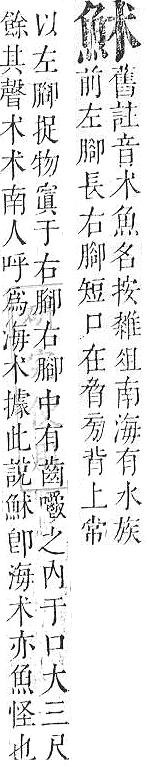 䰲
舊註音术魚名按雜俎南海有水族
前左腳長右腳短口在脅旁背上常
以左腳捉物寘于右腳右腳中有齒嚙之內于口大三尺
餘其聲术术南人呼爲海术據此說䰲卽海术亦魚怪也